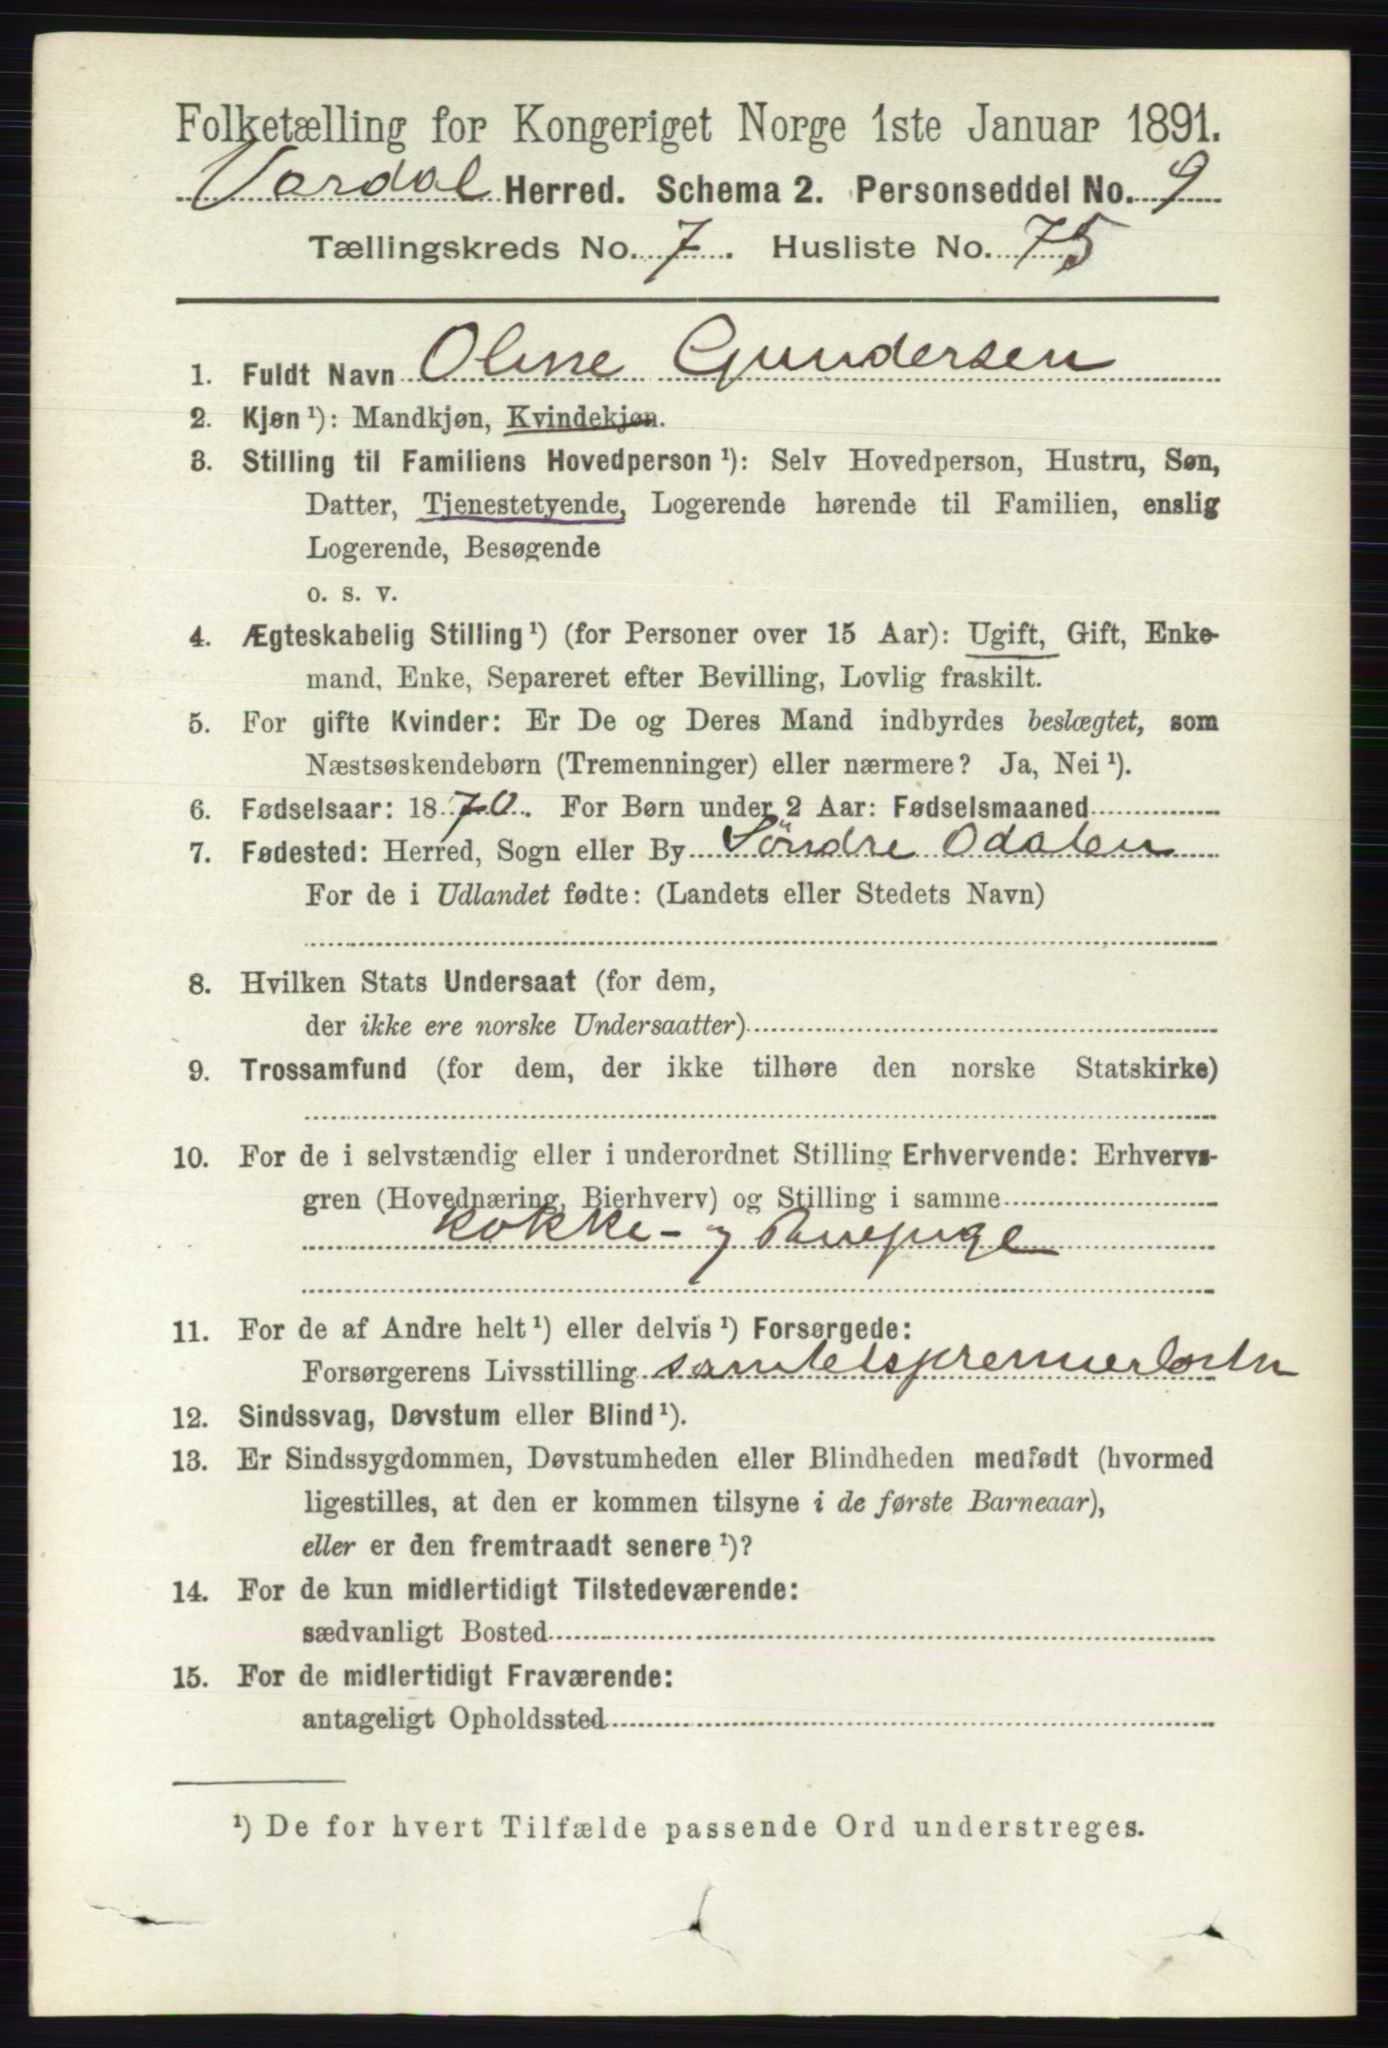 Folketælling for Kongeriget Norge 1ste Januar 1891.
Vardal Herred. Schema 2. Personseddel No. 9
Tællingskreds No. 7. Husliste No. 75
1. Fuldt Navn Oline Gundersen
2. Kjøn ¹): Mandkjøn, Kvindekjøn.
3. Stilling til Familiens Hovedperson ¹): Selv Hovedperson, Hustru, Søn,
Datter, Tjenestetyende, Logerende hørende til Familien, enslig
Logerende, Besøgende
o. s. v.
4. Ægteskabelig Stilling ¹) (for Personer over 15 Aar): Ugift, Gift, Enke-
mand, Enke, Separeret efter Bevilling, Lovlig fraskilt.
5. For gifte Kvinder: Er De og Deres Mand indbyrdes beslægtet, som
Næstsøskendebørn (Tremenninger) eller nærmere? Ja, Nei ¹).
6. Fødselsaar: 1870. For Børn under 2 Aar: Fødselsmaaned
7. Fødested: Herred, Sogn eller By Söndre Odalen
For de i Udlandet fødte: (Landets eller Stedets Navn)
8. Hvilken Stats Undersaat (for dem,
der ikke ere norske Undersaatter)
9. Trossamfund (for dem, der ikke tilhøre den norske Statskirke)
10. For de i selvstændig eller i underordnet Stilling Erhvervende: Erhvervs-
gren (Hovednæring, Bierhverv) og Stilling i samme
Kokke- og
11. For de af Andre helt ¹) eller delvis ¹) Forsørgede:
Forsørgerens Livsstilling
12. Sindssvag, Døvstum eller Blind ¹).
13. Er Sindssygdommen, Døvstumheden eller Blindheden medfødt (hvormed
ligestilles, at den er kommen tilsyne i de første Barneaar),
eller er den fremtraadt senere ¹)?
14. For de kun midlertidigt Tilstedeværende:
sædvanligt Bosted
15. For de midlertidigt Fraværende:
antageligt Opholdssted
¹) De for hvert Tilfælde passende Ord understreges.